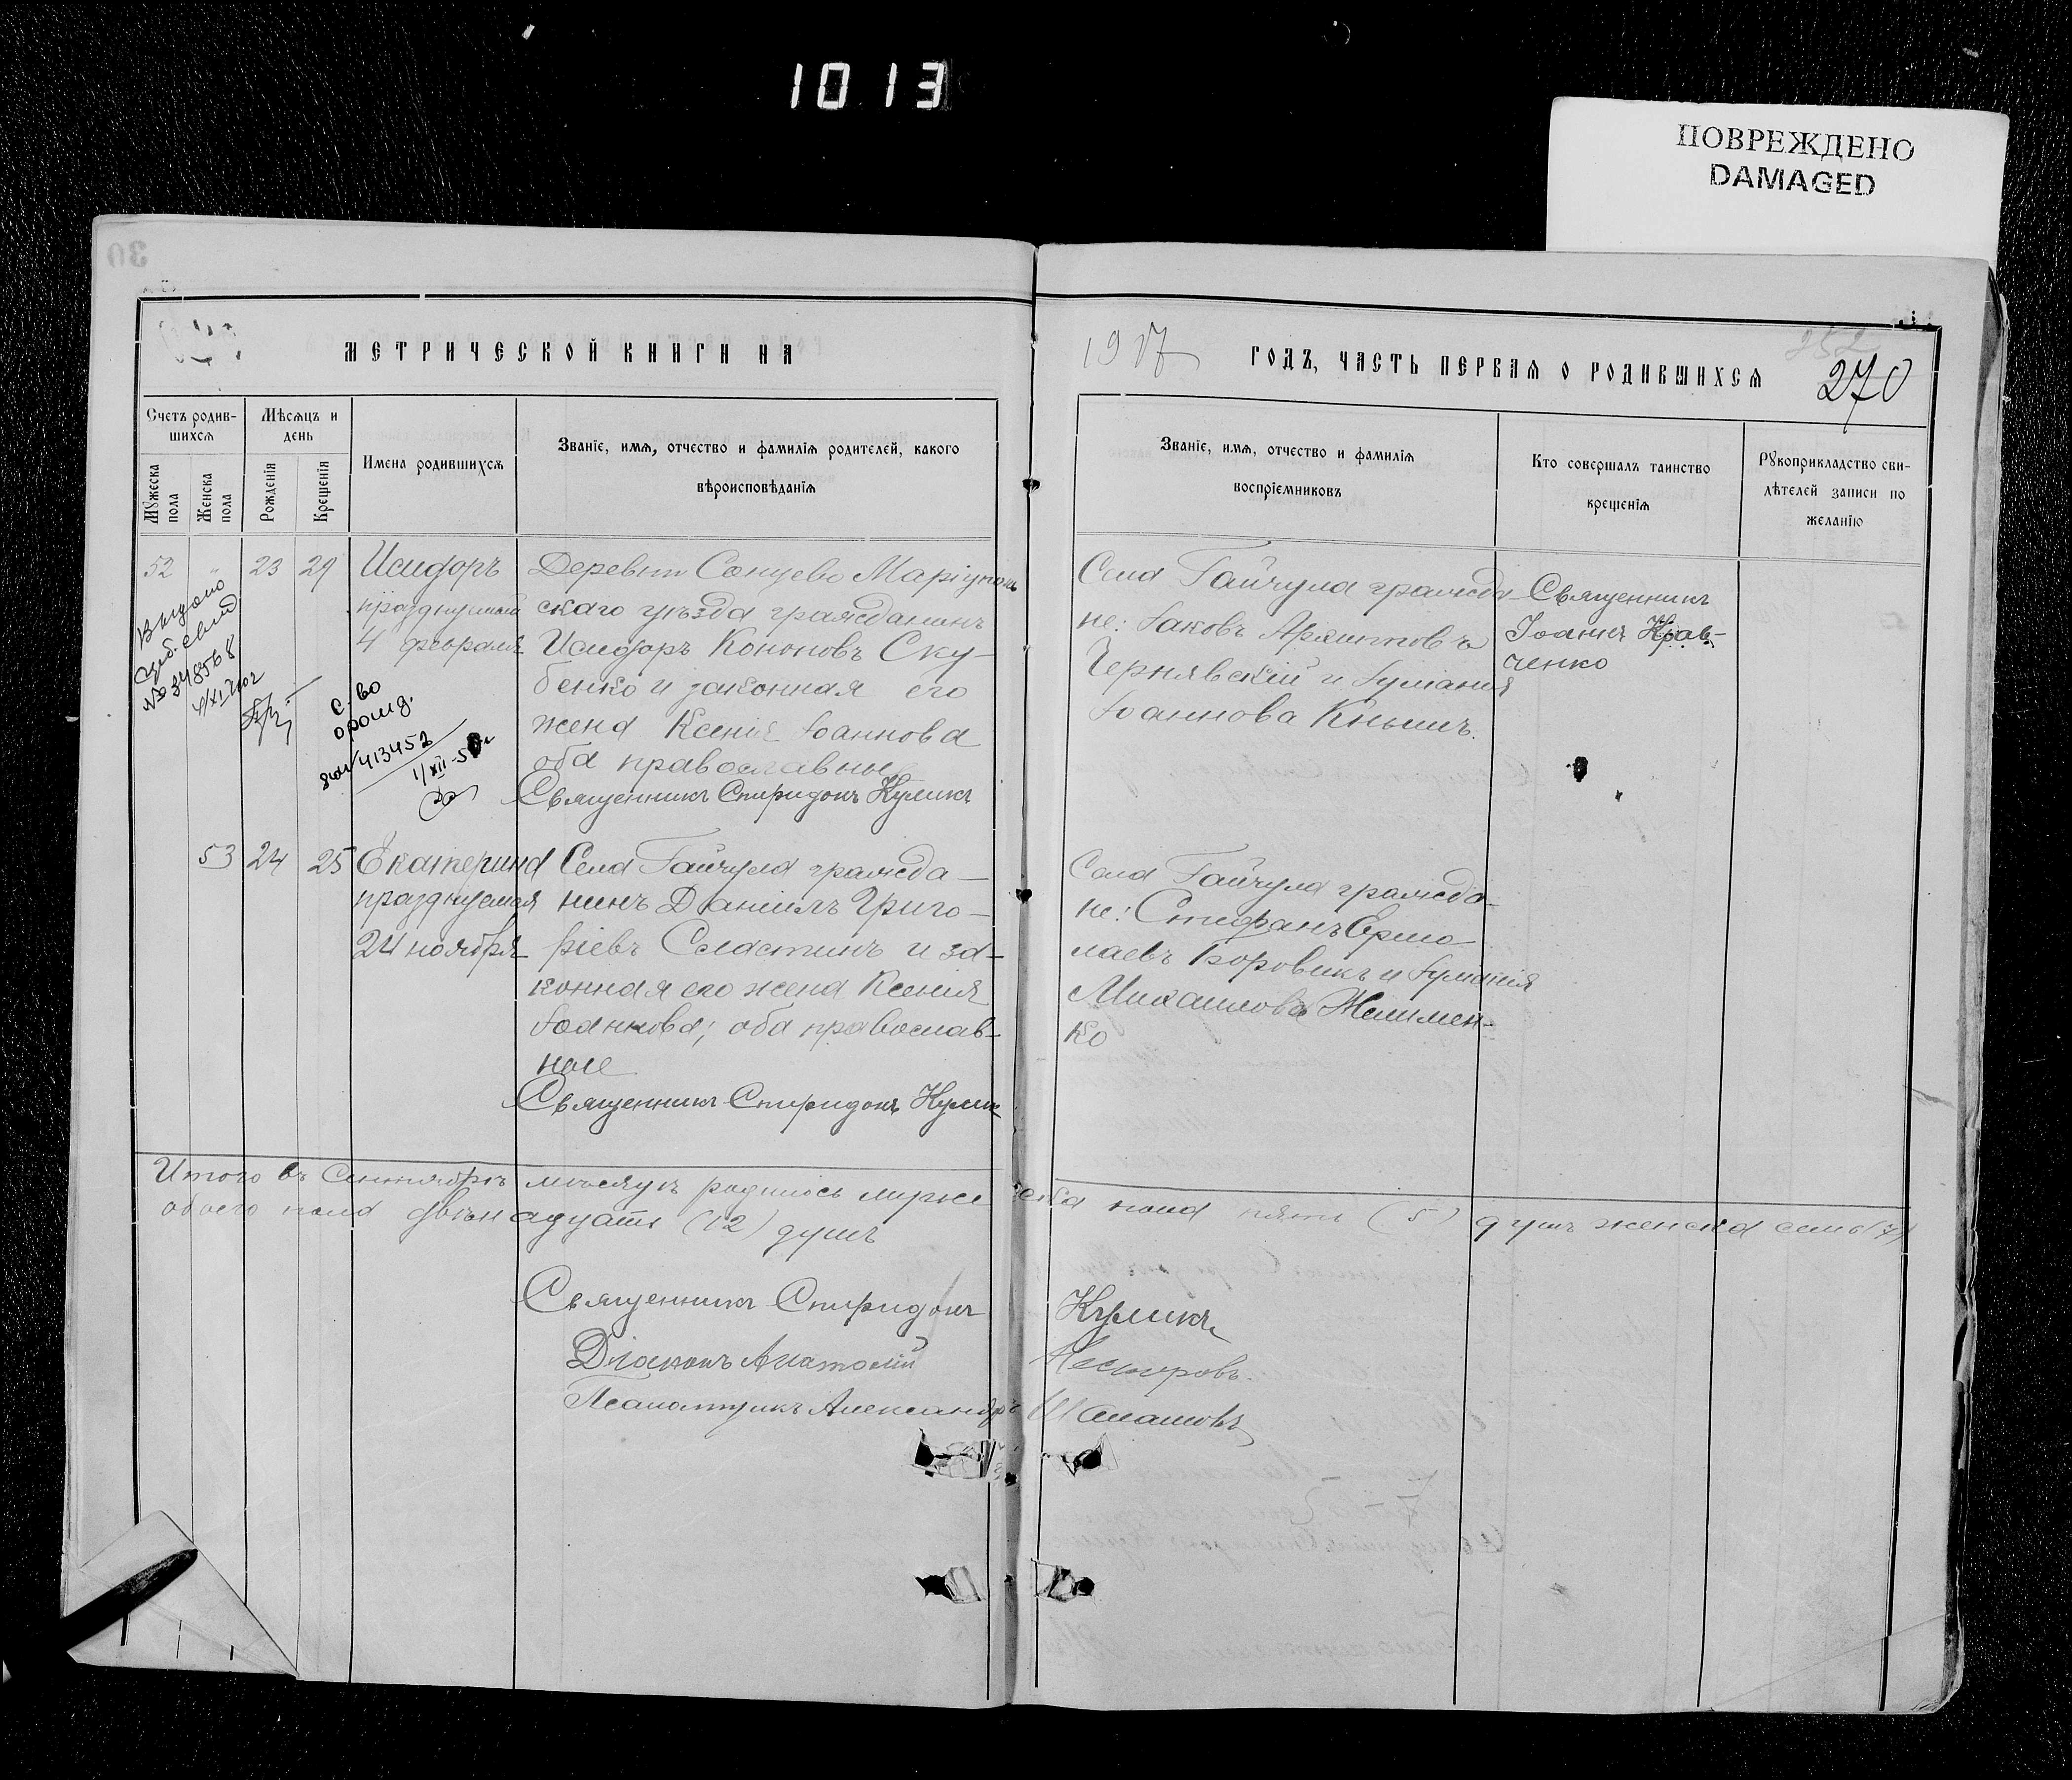 1013
ПОВРЕЖДЕНО
DAMAGED
МЕТРИЧЕСКОЙ КНИГИ НА
1917
ГОДЪ, ЧАСТЬ ПЕРВАЯ О РОДИВШИХСЯ
270
Счетъ родив-
шихся
Мѣсяцъ и
день
Мужеска
пола
Женска
пола
Рожденія
Крещенія
Имена родившихся
Званіе, имя, отчество и фамилія родителей, какого
вѣроисповѣданія
Званіе, имя, отчество и фамилія
воспріемниковъ
Кто совершалъ таинство
крещенія
Рукоприкладство сви-
дѣтелей записи по
желанію
52 " 23 29
Исидоръ
празднуемый
4 февраля
Деревни Сонцево Маріуполь
скаго уѣзда гражданинъ
Исидоръ Кононовъ Ску-
бенко и законная его
жена Ксенія Іоаннова
оба православные
Священникъ Спиридонъ Куликъ
Выдано
№ 348568
с-во
о рожд.
413452
1/XII-5
Села Гайчула гражда-
не: Іаковъ
Чернявскій и
Іоаннова Кнышъ.
Священникъ
Іоаннъ Крав-
ченко
53 24 25
Екатерина
празднуемая
24 ноября
Села Гайчула гражда-
нинъ Даніилъ Григо-
ріевъ Сластинъ и за-
конная его жена Ксенія
Іоаннова; оба православ-
ные
Священникъ Спиридонъ Кулик
Села Гайчула гражда-
не: Стефанъ Ермо
лаевъ Боровикъ и
Михаилова
ко
Итого въ Сентябрѣ мѣсяцѣ родилось мужеска пола пять (5) душъ женска семь (7)
обоего пола двѣнадцать (12) душъ
Священникъ Спиридонъ Куликъ
Діаконъ Анатолій Нестеровъ.
Псаломщикъ Александръ